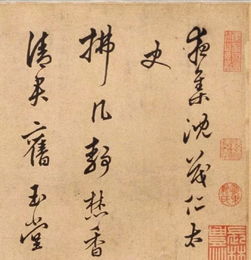 夜集沈茂仁太
史
拂几靜焚香
清舊玉堂